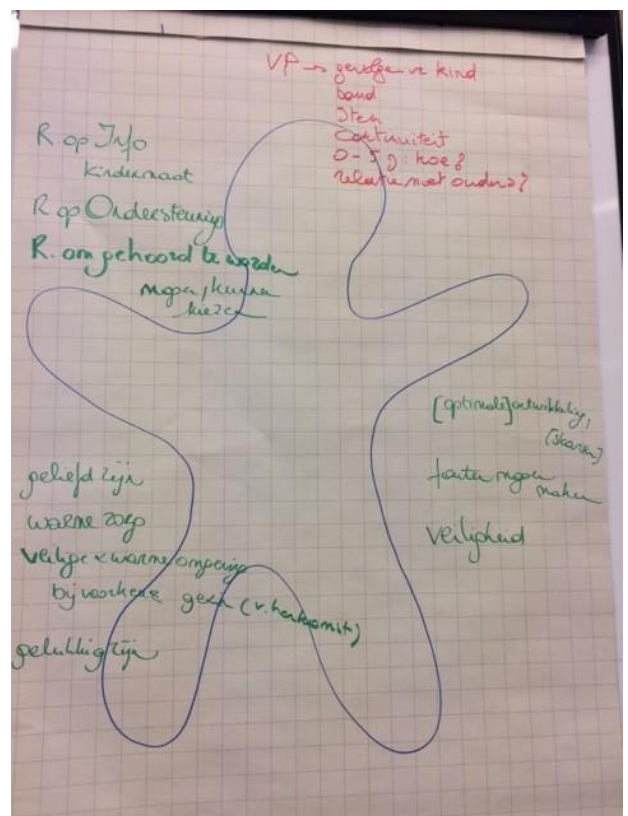 VP → gevolgen vr kind
band
Stem
Continuiteit
0-5j: hoe?
relatie met ouders?
R op Info
kindermaat
R op Ondersteuning
R. om gehoord te worden
mogen, kunnen
kiezen
[optimale] ontwikkeling,
fouten mogen
maken
veiligheid
geliefd zijn
warme zorg
veilige & warme omgeving
bij voorkeur gezin (v. herkomst)
gelukkig zijn